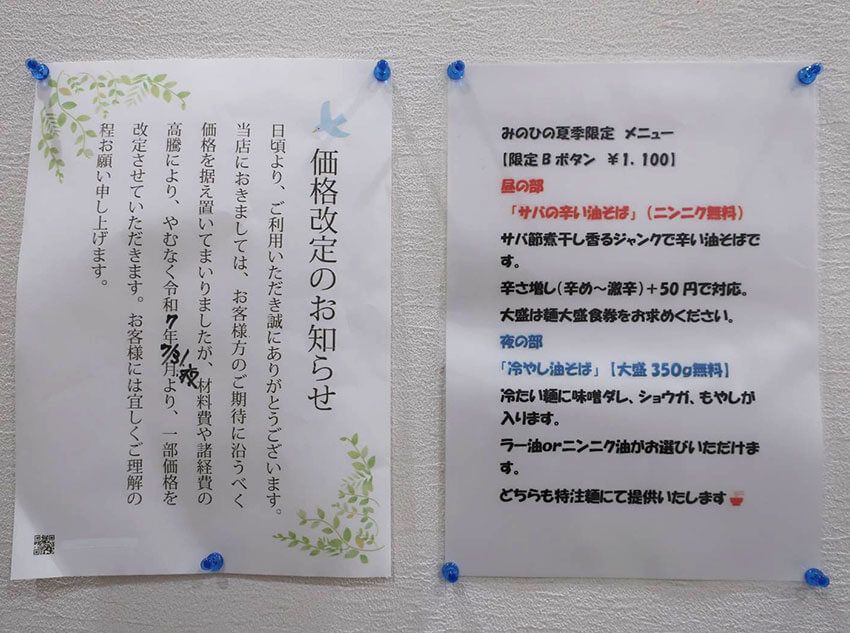 価格改定のお知らせ
日頃より、ご利用いただき誠にありがとうございます。
当店におきましては、お客様方のご期待に沿うべく
価格を据え置いてまいりましたが、材料費や諸経費の
高騰により、やむなく令和7年7/31夜月より、一部価格を
改定させていただきます。お客様には宜しくご理解の
程お願い申し上げます。
みのひの夏季限定 メニュー
【限定Bボタン ¥1,100】
昼の部
「サバの辛い油そば」（ニンニク無料）
サバ節煮干し香るジャンクで辛い油そばで
す。
辛さ増し（辛め～激辛）＋50円で対応。
大盛は麺大盛食券をお求めください。
夜の部
「冷やし油そば」【大盛350g無料】
冷たい麺に味噌ダレ、ショウガ、もやしが
入ります。
ラー油orニンニク油がお選びいただけま
す。
どちらも特注麺にて提供いたします